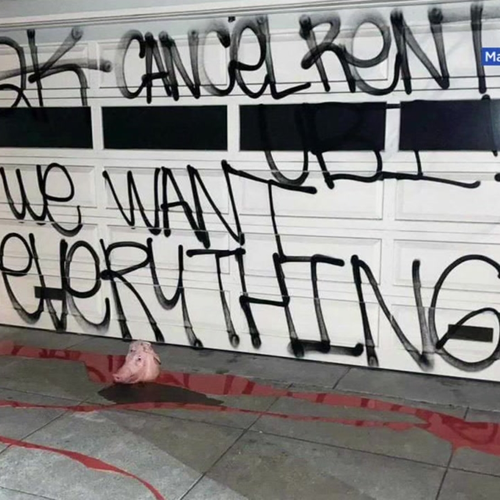 2K CANCEL RENT
Ma
UBI!
WE WANT
EVERYTHING